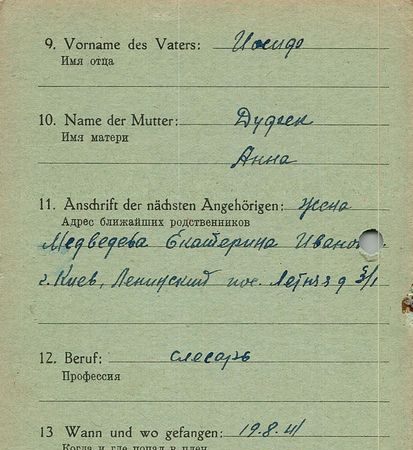 9. Vorname des Vaters: Иосиф
Имя отца
10. Name der Mutter: Дудчек
Имя матери
Анна
11. Anschrift der nächsten Angehörigen: жена
Адрес ближайших родственников
Медведева Екатерина Иванов
г. Киев, Ленинский пос. д 3/1
12. Beruf: слесарь
Профессия
13 Wann und wo gefangen: 19.8.41
Когда и где попал в плен